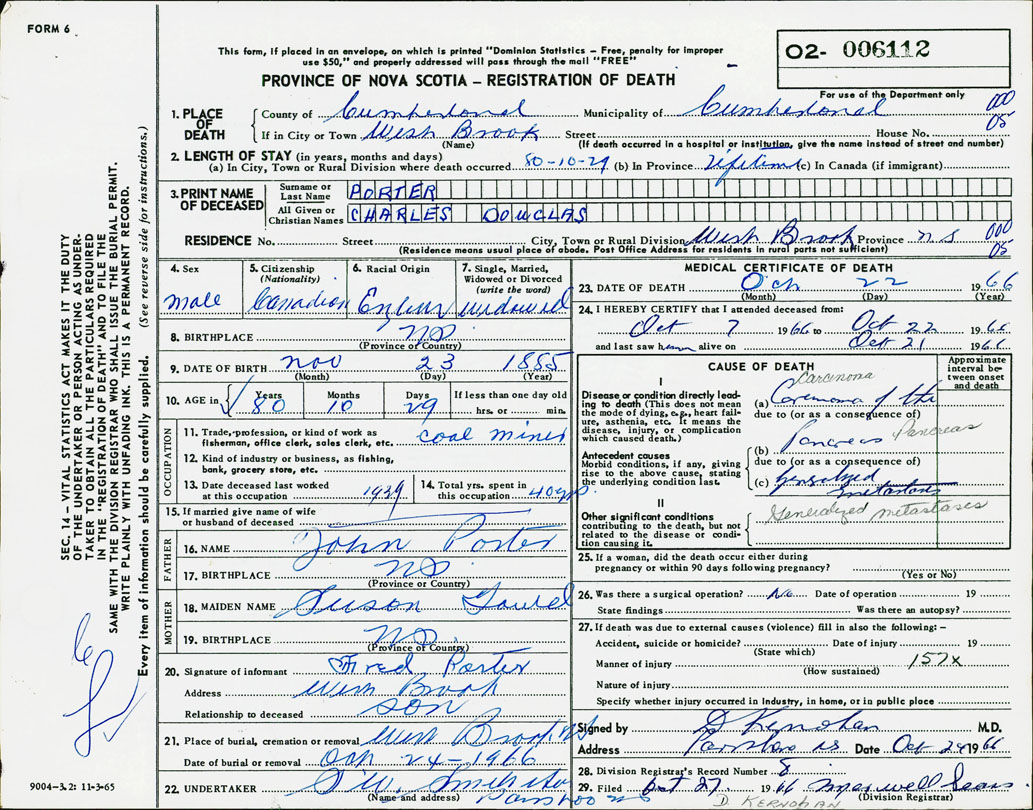 FORM 6
This form, if placed in an envelope, on which is printed "Dominion Statistics – Free, penalty for improper
use $50," and properly addressed will pass through the mail "FREE"
PROVINCE OF NOVA SCOTIA – REGISTRATION OF DEATH
O2- 006112
For use of the Department only
1. PLACE OF DEATH County of Cumberland Municipality of Cumberland 000
If in City or Town West Brook Street House No. 05
(Name) (If death occurred in a hospital or institution, give the name instead of street and number)
2. LENGTH OF STAY (in years, months and days)
(a) In City, Town or Rural Division where death occurred 80-10-29 (b) In Province Lifetime (c) In Canada (if immigrant)
3. PRINT NAME OF DECEASED Surname or Last Name PORTER
All Given or Christian Names CHARLES DOUGLAS
RESIDENCE No. Street City, Town or Rural Division West Brook Province N S 000
(Residence means usual place of abode. Post Office Address for residents in rural parts not sufficient) 05
4. Sex male
5. Citizenship (Nationality) Canadian
6. Racial Origin English
7. Single, Married, Widowed or Divorced (write the word) widowed
8. BIRTHPLACE NS
(Province or Country)
9. DATE OF BIRTH Nov 23 1885
(Month) (Day) (Year)
10. AGE in Years 80 Months 10 Days 29 If less than one day old hrs. or min.
OCCUPATION
11. Trade, profession, or kind of work as fisherman, office clerk, sales clerk, etc. coal miner
12. Kind of industry or business, as fishing, bank, grocery store, etc.
13. Date deceased last worked at this occupation 1939
14. Total yrs. spent in this occupation 40 yrs
15. If married give name of wife or husband of deceased
FATHER
16. NAME John Porter
17. BIRTHPLACE NS
(Province or Country)
MOTHER
18. MAIDEN NAME Susan
19. BIRTHPLACE NS.
(Province or Country)
20. Signature of informant Fred Porter
Address West Brook
Relationship to deceased son
21. Place of burial, cremation or removal West Brook NS
Date of burial or removal Oct 24-1966
22. UNDERTAKER Smith
(Name and address) Parrsboro NS
MEDICAL CERTIFICATE OF DEATH
23. DATE OF DEATH Oct 22 1966
(Month) (Day) (Year)
24. I HEREBY CERTIFY that I attended deceased from:
Oct 7 1966 to Oct 22 1966
and last saw him alive on Oct 21 1966
CAUSE OF DEATH
Approximate interval between onset and death
I
Disease or condition directly leading to death (This does not mean the mode of dying, e.g., heart failure, asthenia, etc. It means the disease, injury, or complication which caused death.)
Carcinoma
(a) Carcinoma of the
due to (or as a consequence of)
(b) Pancreas Pancreas
Antecedent causes
Morbid conditions, if any, giving rise to the above cause, stating the underlying condition last.
due to (or as a consequence of)
(c) generalized metastases
II
Other significant conditions contributing to the death, but not related to the disease or condition causing it.
Generalized metastases
25. If a woman, did the death occur either during
pregnancy or within 90 days following pregnancy?
(Yes or No)
26. Was there a surgical operation? No Date of operation 19
State findings Was there an autopsy?
27. If death was due to external causes (violence) fill in also the following: –
Accident, suicide or homicide? Date of injury 19
(State which)
Manner of injury 157x
(How sustained)
Nature of injury
Specify whether injury occurred in Industry, in home, or in public place
Signed by D Kernohan M.D.
Address Parrsboro NS Date Oct 24 1966
28. Division Registrar's Record Number 8
29. Filed Oct 27 1966 Maxwell
(Division Registrar)
D. KERNOHAN
SEC. 14 – VITAL STATISTICS ACT MAKES IT THE DUTY
OF THE UNDERTAKER OR PERSON ACTING AS UNDER-
TAKER TO OBTAIN ALL THE PARTICULARS REQUIRED
IN THE "REGISTRATION OF DEATH" AND TO FILE THE
SAME WITH THE DIVISION REGISTRAR WHO SHALL ISSUE THE BURIAL PERMIT.
WRITE PLAINLY WITH UNFADING INK. THIS IS A PERMANENT RECORD.
Every item of information should be carefully supplied. (See reverse side for instructions.)
9004-3.2: 11-3-65